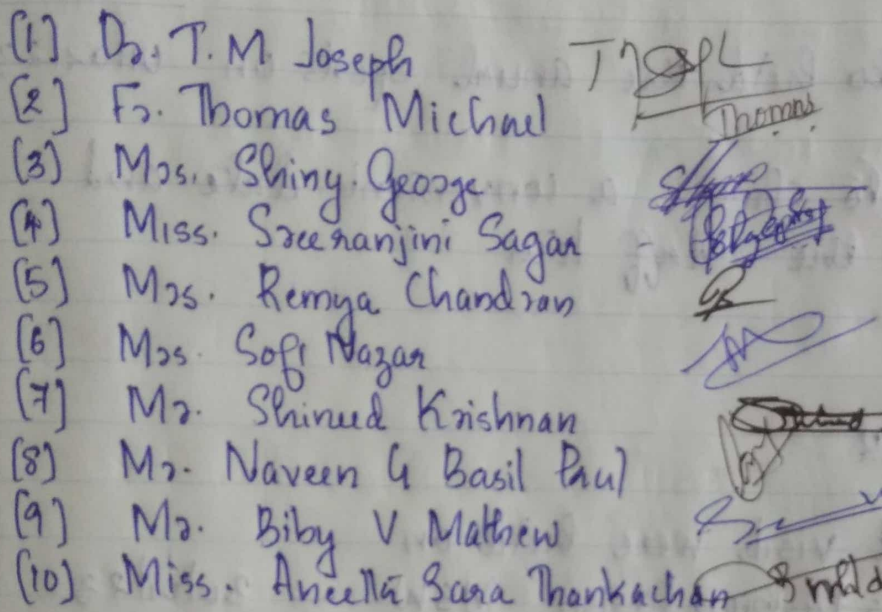 (1) Dr. T. M. Joseph
(2) Fr. Thomas Michael Thomas
(3) Mrs. Shiny George
(4) Miss. Sreeranjini Sagar -
(5) Mrs. Remya Chandran
(6) Mrs. Sofi Nazar
(7) Mr. Shinud Krishnan
(8) Mr. Naveen G Basil Paul
(9) Mr. Biby V Mathew
(10) Miss. Aneetta Sara Thankachan